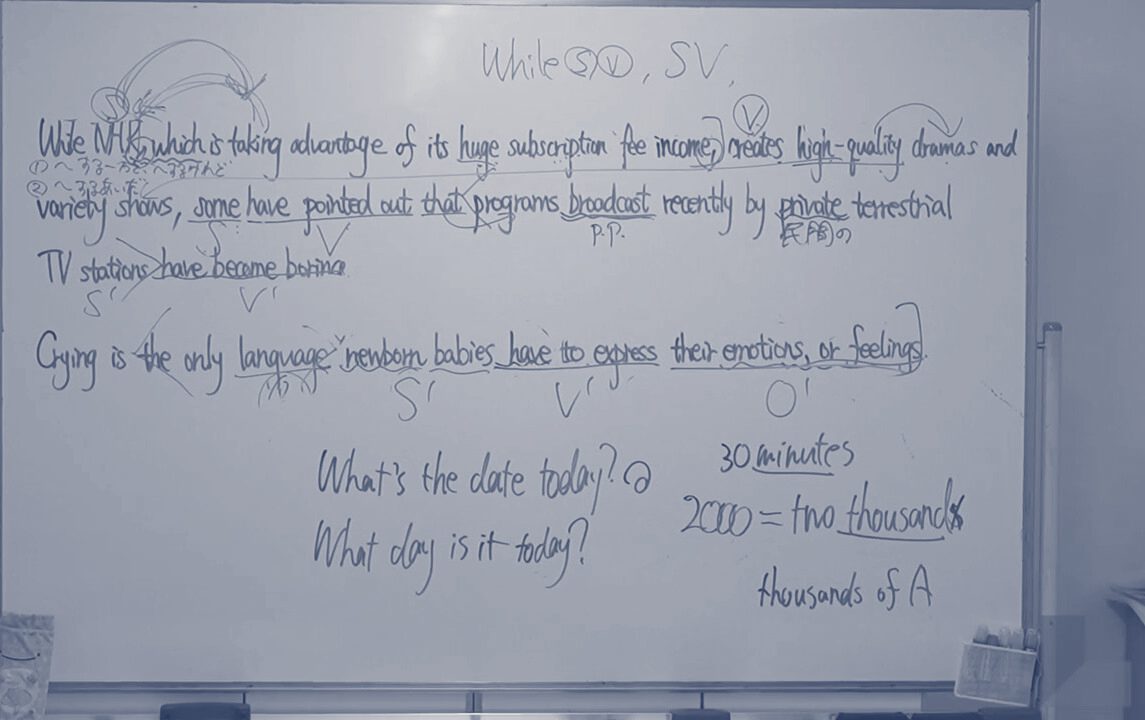 While Ⓢ Ⓥ, SV,
Ⓢ
Ⓥ
While NHK, which is taking advantage of its huge subscription fee income, creates high-quality dramas and
① ~する一方で、~するけれど
② ~するあいだ
variety shows, some have pointed out that programs broadcast recently by private terrestrial
S V P.P. 民間の
TV stations have become boring
S' V'
Crying is the only language newborn babies have to express their emotions, or feelings.
S' V' O'
What's the date today?
30 minutes
2000 = two thousands
What day is it today?
thousands of A